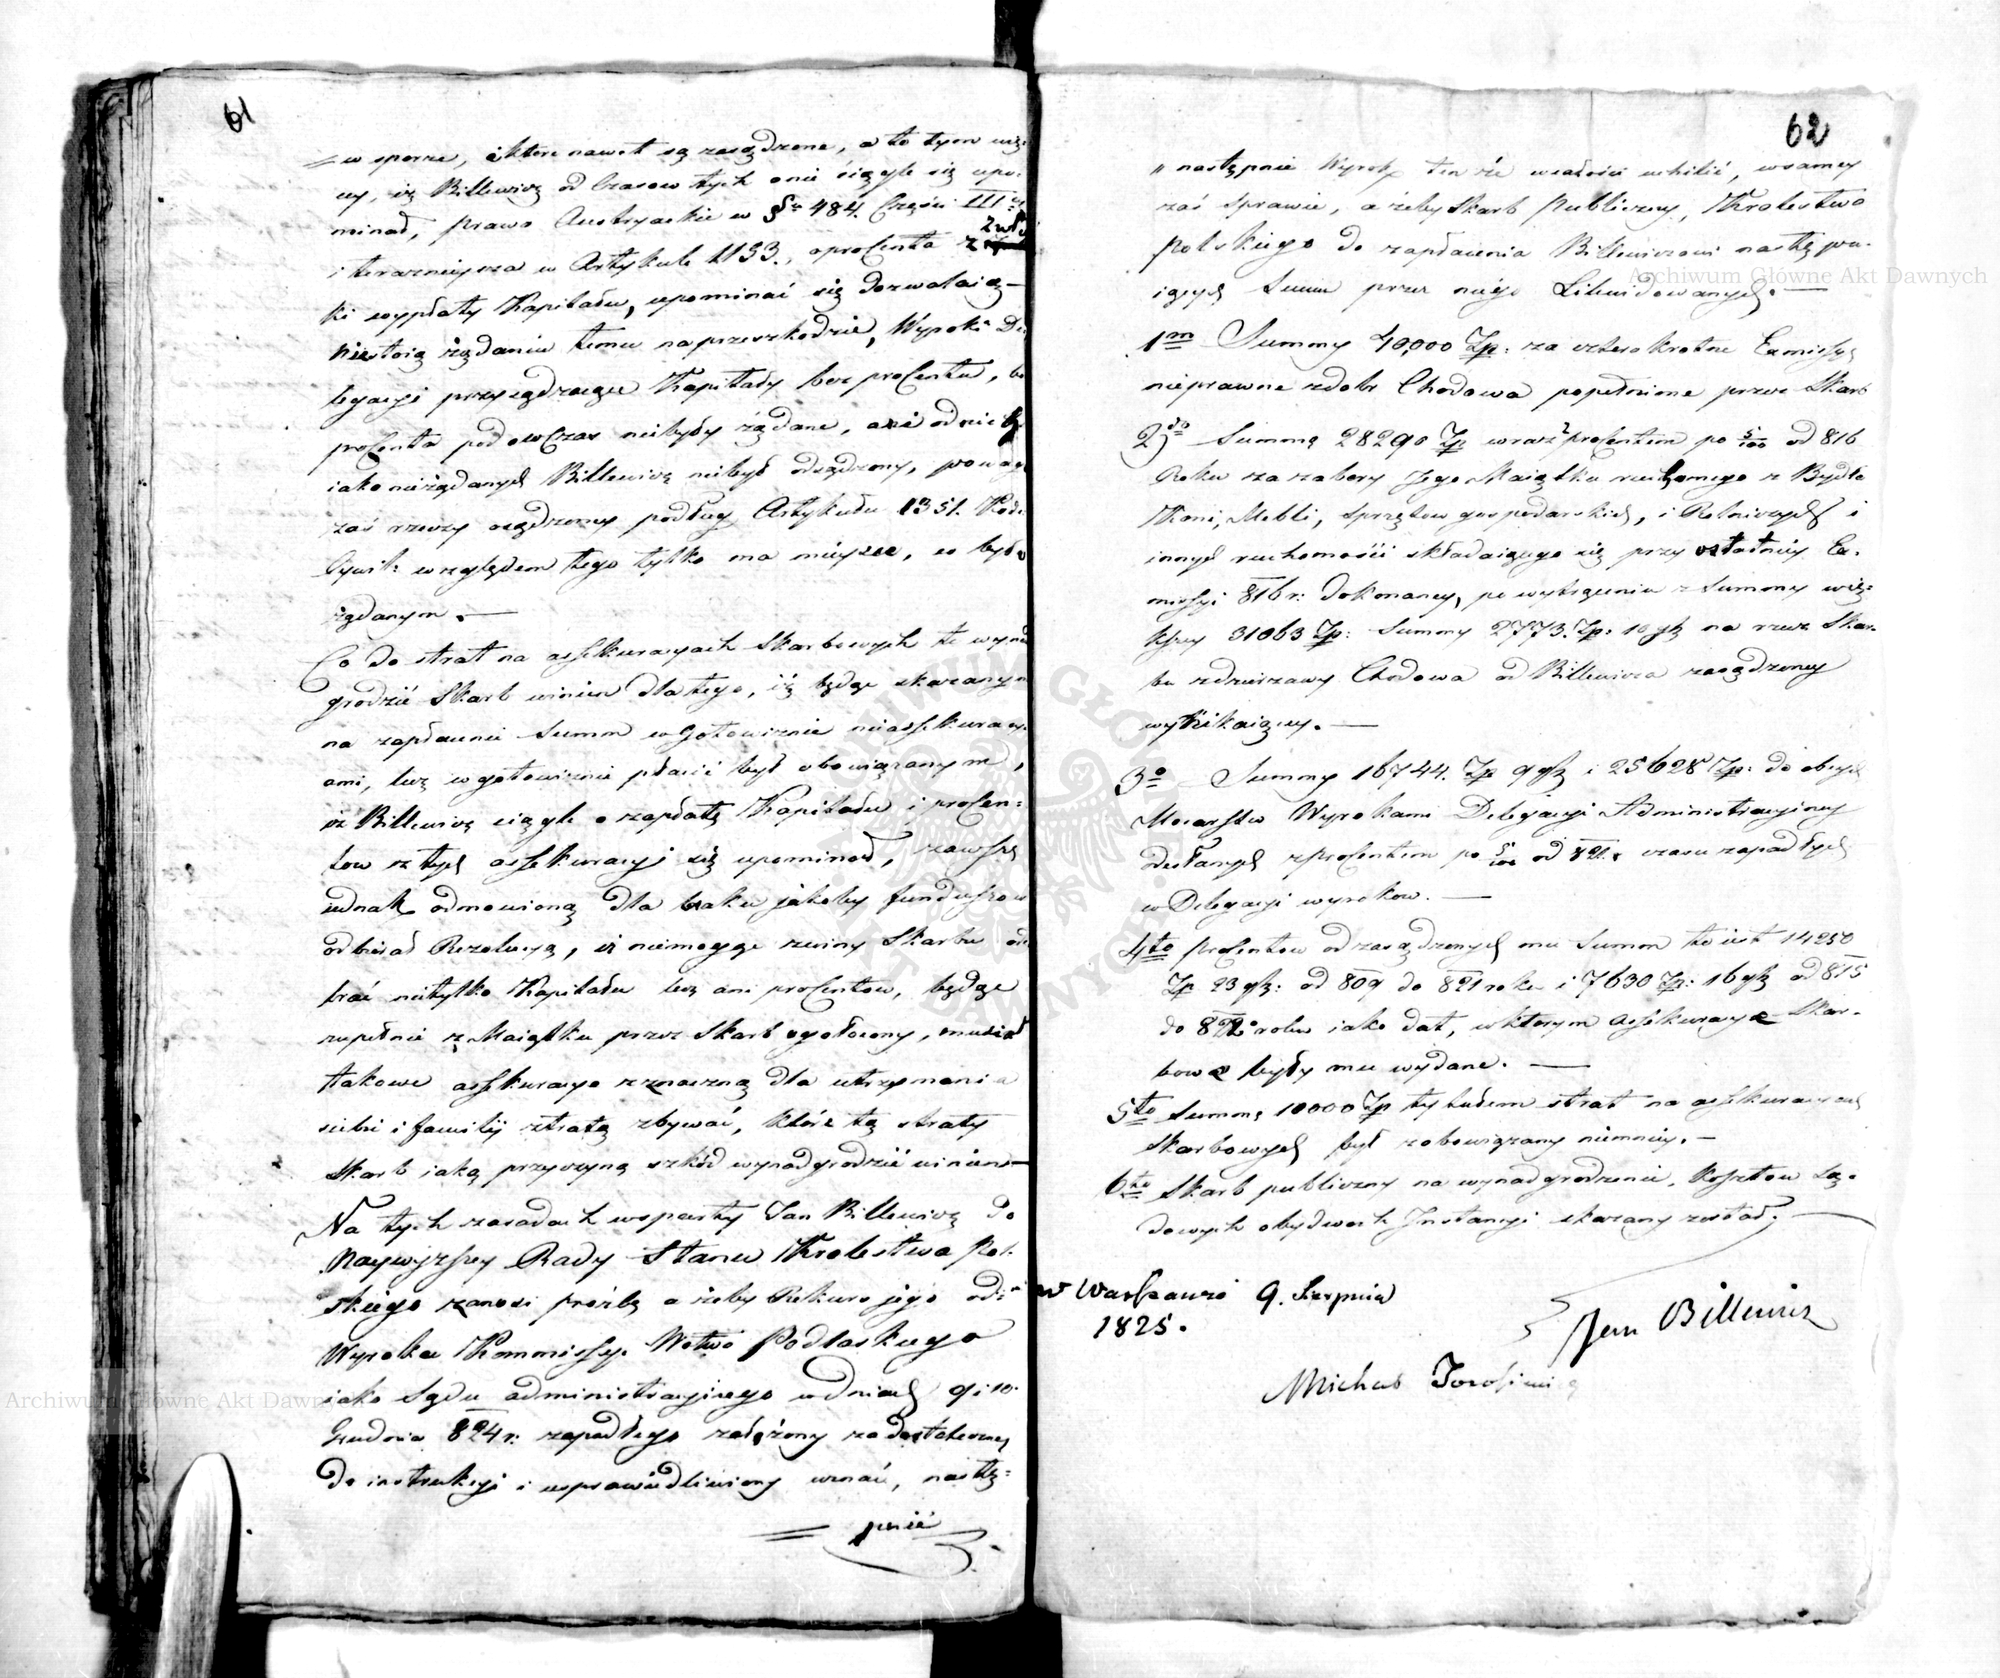 61
w sporze, i które nawet są zasądzone, a to tym wię-
cy, iż Billewicz od Czasow tych onie ciągle się upo-
minał, prawo Austryackie w §ie 484. Części III
i terazniejsza w Artykule 1153., o procenta z zwło
ki wypłaty Kapitału, upominać się dozwalaią —
Niestoią żądaniu temu na przeszkodzie, Wyroki De
legacyi przysądzaiące Kapitały bez procentu, bo
procenta podowczas niebyły żądane, ani od nich
iako nieżądanych Billewicz niebył odsądzony, powaga
zaś rzeczy osądzoney podług Artykułu 1351. Kode
Cywil: względem tego tylko ma mieysce, co było
żądanym. —
Co do strat na assekuracyach Skarbowych te wyna
grodzić Skarb winien dla tego, iż będąc skazanym
na zapłacenie Summ w gotowiznie nie assekuracy
ami, lecz w gotowiznie płacić był obowiązanym,
iż Billewicz ciągle o zapłatę Kapitału i procen=
tow z tych assekuracyi się upominał, zawsze
iednak odmowioną dla braku jakoby funduszow
odbierał Rezolucyą, iż niemogąc z winy Skarbu ode
brać nietylko Kapitału lecz ani procentow, będąc
zupełnie z Maiątku przez Skarb ogołocony, musiał
takowe assekuracye z znaczną dla utrzymania
siebie i familij stratą zbywać, które tę straty
Skarb iako przyczyna szkód wynadgrodzić winien —
Na tych zasadach wsparty Jan Billewicz do
Naywyższey Rady Stanu Krolestwa Pol-
skiego zanosi prożbę ażeby Rekurs jego od
Wyroku Kommissyi Wtwa Podlaskiego
iako Sądu administracyjnego w dniach 9 i 10.
Grudnia 824 r: zapadłego założony za dostateczny
do instrukcyi i usprawiedliwiony uznać, nastę=
pnie
62
" następnie Wyrok ten że w całości uchilić, w samey
zaś sprawie, ażeby Skarb Publiczny, Krolestwa
Polskiego do zapłacenia Billewiczowi nastę pu-
iących Summ przez niego Likwidowanych. —
1m Summy 40,000 Zp: za czterokrotne Exmissye
nieprawne z dobr Chodowa popełnione przez Skarb
2do Summę 28290 Zp wraz z procentem po 5/100 od 816
Roku za zabory Jego Maiątku ruchomego z Bydła
Koni, Mebli, sprzętow gospodarskich, i Rolniczych i
innych ruchomości składaiącego się przy ostatniey Ex-
missyi 816 r: dokonaney, po wytrąceniu z Summy więk=
kszey 31063 Zp: Summy 2773. Zp: 10 gr na rzecz Skar-
bu z dzierzawy Chodowa od Billewicza zasądzoney
wynikaiącey. —
3o Summy 16744. Zp 9 gr i 25628 Zp: do obcych
Mocarstw Wyrokami Delegacyi Administracyjney
odesłanych z procentem po 5/100 od 821. czasu zapadłych
w Delegacyi wyrokow. —
4to procentow od zasądzonych mu Summ to iest 14250
Zp 23 gr: od 809 do 821 roku i 7630 Zp: 16 gr od 815
do 822 roku iako dat, w ktorym assekuracye Skar-
bowe były mu wydane. —
5to Summę 10000 Zp tytułem strat na assekuracyach
Skarbowych był zobowiązany niemniey. —
6to Skarb publiczny na wynadgrodzenie, Kosztow Są-
dowych obydwoch Instancyi skazany został. —
w Warszawie 9. Sierpnia
1825.
Jan Billewicz
Michał
Archiwum Główne Akt Dawnych
Archiwum Główne Akt Dawnych